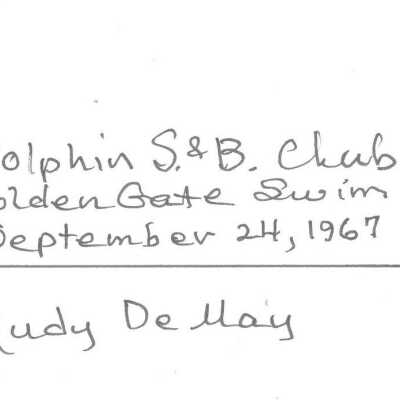 olphin S. & B. Club
olden Gate Swim
eptember 24, 1967
udy De May